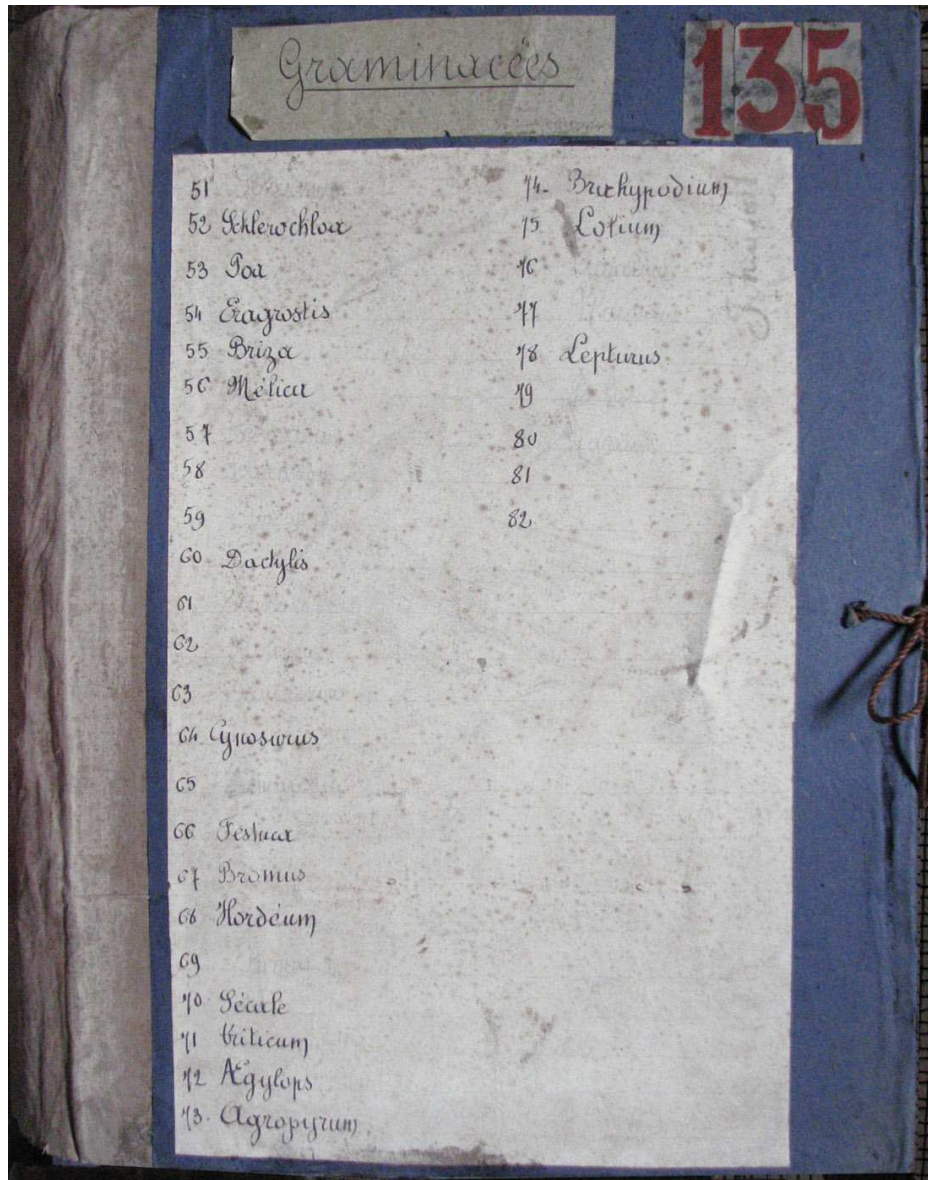 Graminacées
135
51
52 Schlerochloa
53 Poa
54 Eragrostis
55 Briza
56 Mélica
57
58
59
60 Dactylis
61
62
63
64 Cynosurus
65
66 Festuca
67 Bromus
68 Hordéum
69
70 Sécale
71 Triticum
72 Ægylops
73. Agropyrum
74. Brachypodium
75 Lolium
76
77
78 Lepturus
79
80
81
82